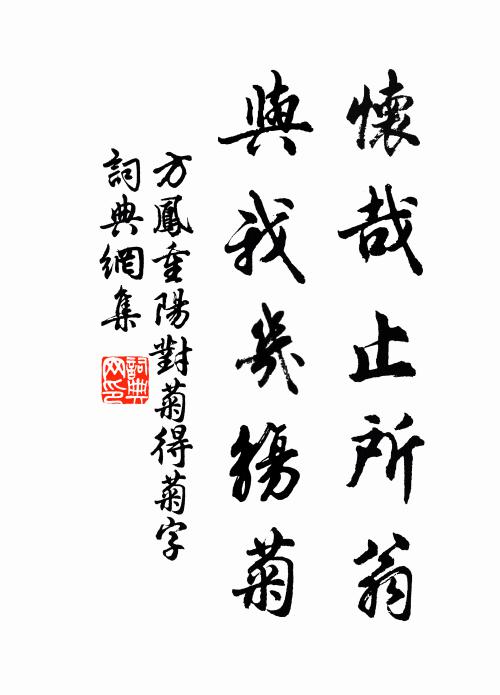 懷哉止所翁
與我幾觴菊
方鳳重陽對菊得菊字
詞典網集
詞典網印